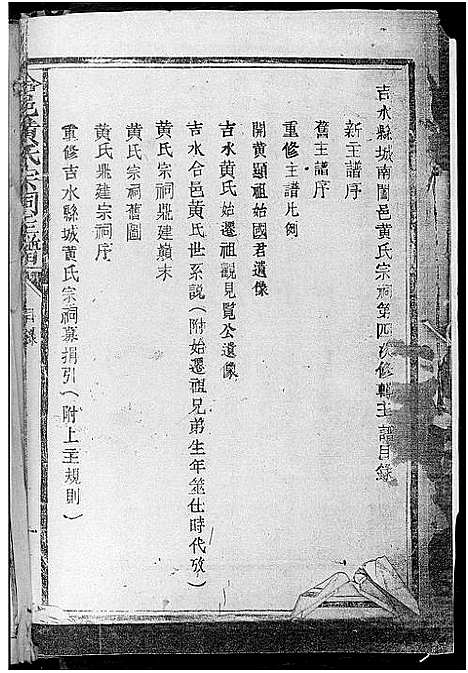 吉水縣城南闔邑黃氏宗祠第四次修輯主譜目錄
新主譜序
舊主譜序
重修主譜凡例
開黃顯祖始國君遺像
吉水黃氏始遷祖觀見覽公遺像
吉水合邑黃氏世系説(附始遷祖兄弟生年筮仕時代攷)
黃氏宗祠鼎建巔末
黃氏宗祠舊圖
黃氏鼎建宗祠序
重修吉水縣城黃氏宗祠募捐引(附上主規則)
合邑黃氏宗祠主譜
目錄
一